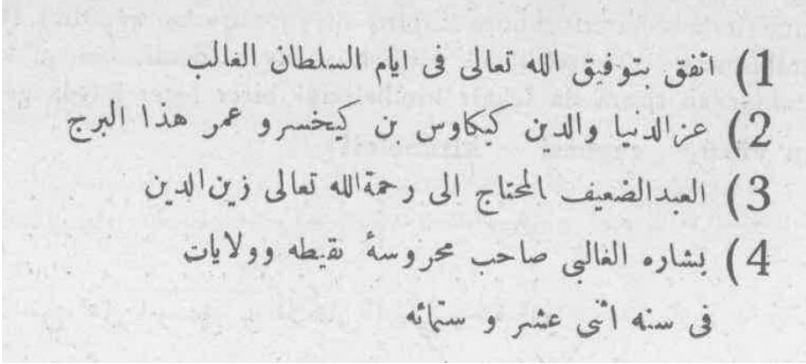 1) اتفق بتوفيق الله تعالى فى ايام السلطان الغالب
2) عزالدنيا والدين كيكاوس بن كيخسرو عمر هذا البرج
3) العبدالضعيف المحتاج الى رحمةالله تعالى زين‌الدين
4) بشاره الغالبى صاحب محروسۀ نقيطه وولايات
فى سنه اثنى عشر و ستمائه